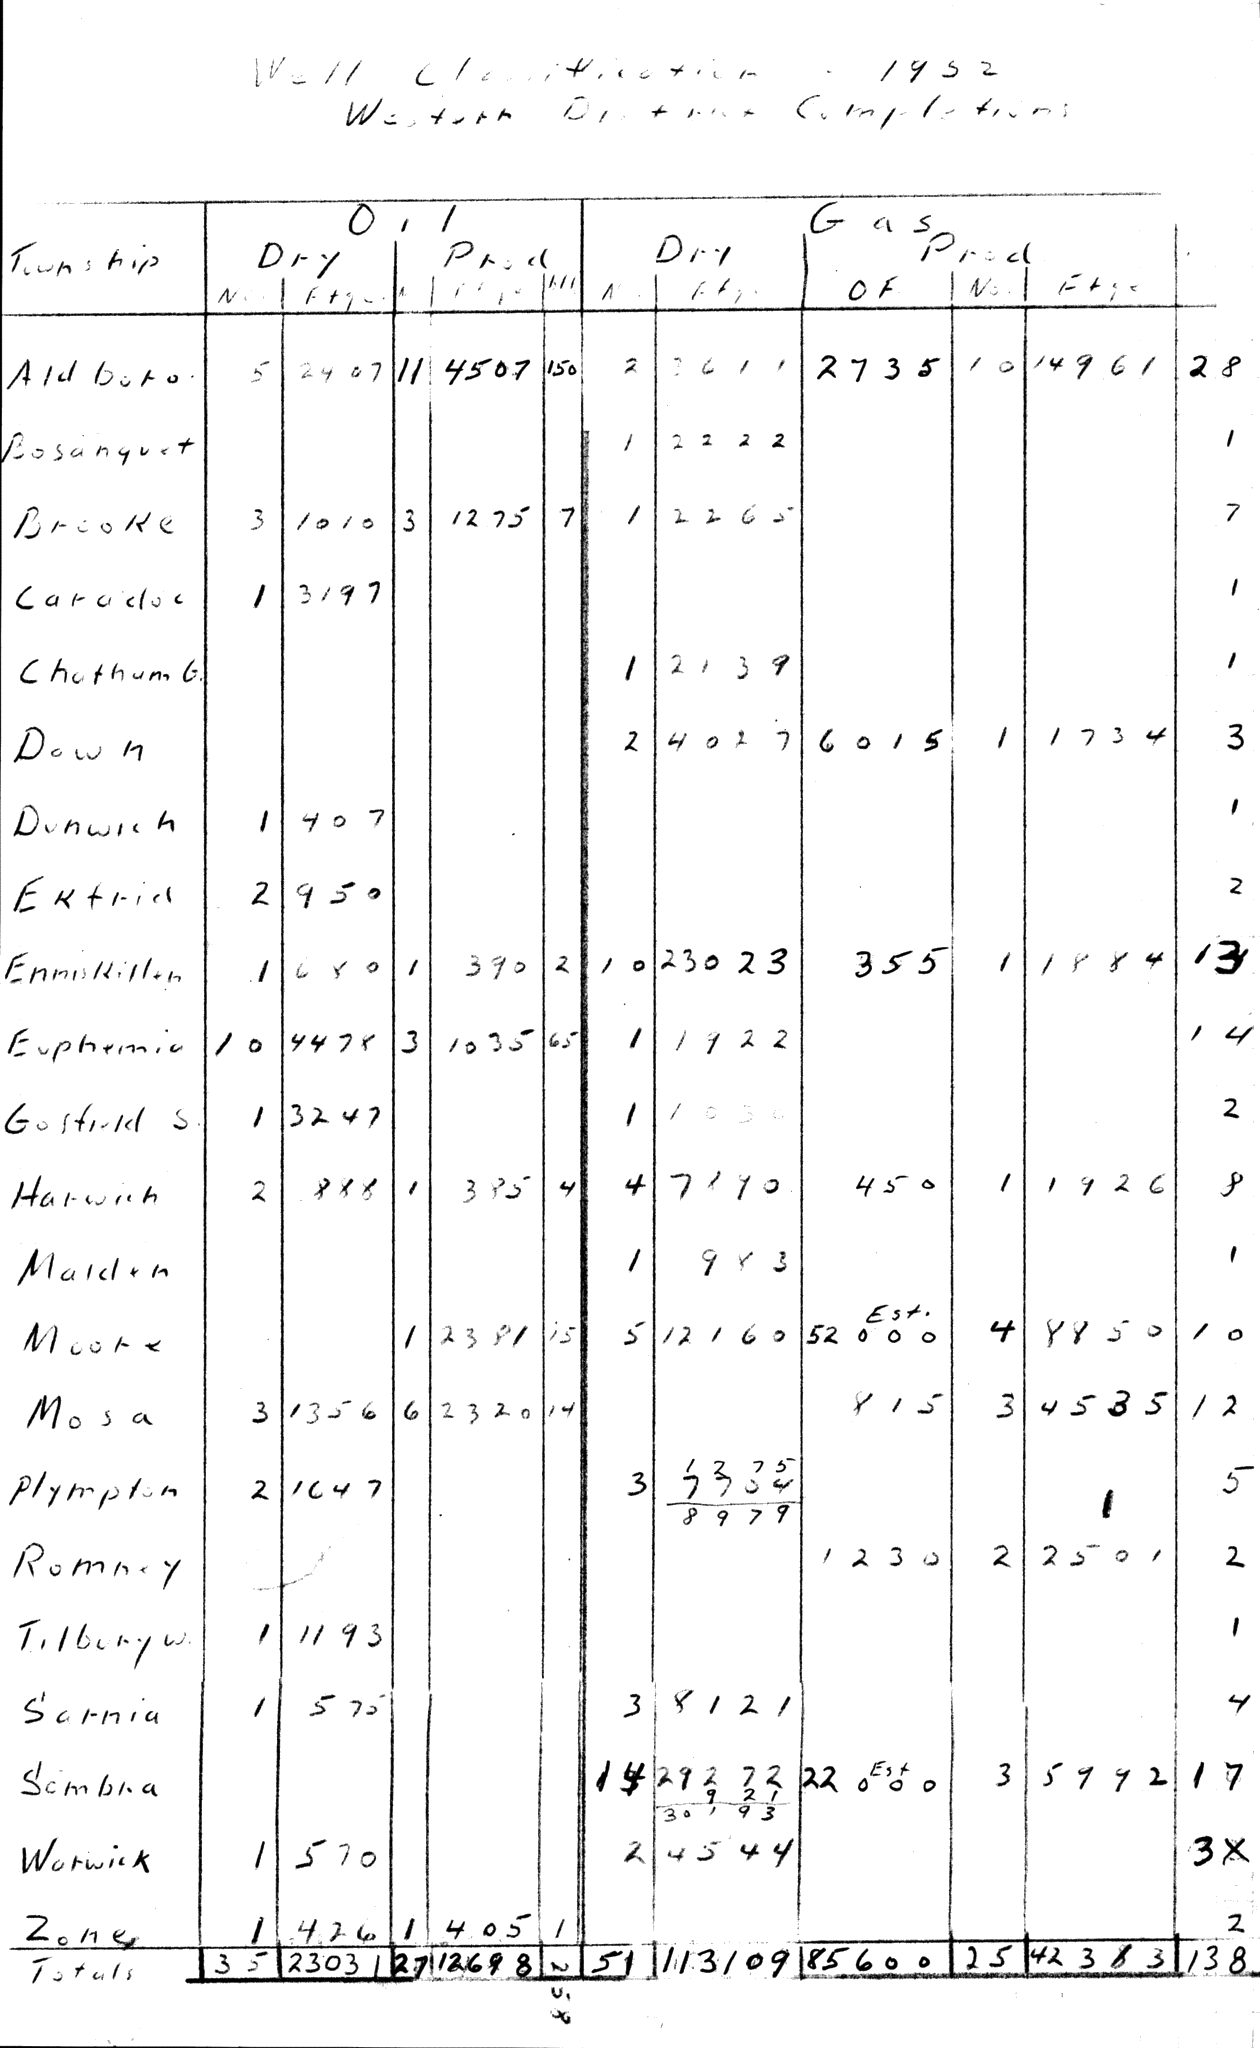 Well Classification - 1952
Western District Completions
Oil Gas
Township Dry Prod Dry Prod
No. Ftge. N Ftge Bbl No. Ftge OF No. Ftge
Aldboro. 5 2407 11 4507 150 2 3611 2735 10 14961 28
Bosanquet 1 2222 1
Brooke 3 1010 3 1275 7 1 2265 7
Caradoc 1 3197 1
Chatham G. 1 2139 1
Dawn 2 4027 6015 1 1734 3
Dunwich 1 407 1
Ekfrid 2 950 2
Enniskillen 1 680 1 390 2 10 23023 355 1 1884 13
Euphemia 10 4478 3 1035 65 1 1922 14
Gosfield S. 1 3247 1 1030 2
Harwich 2 888 1 385 4 4 7890 450 1 1926 8
Malden 1 983 1
Est.
Moore 1 2381 15 5 12160 52000 4 8850 10
Mosa 3 1356 6 2320 14 815 3 4535 12
1275
Plympton 2 1647 3 7704 1 5
8979
Romney 1230 2 2501 2
Tilbury W. 1 1193 1
Sarnia 1 575 3 8121 4
Sombra 14 29272 22000 Est 3 5992 17
921
30193
Warwick 1 570 2 4544 3
Zone 1 426 1 405 1 2
Totals 35 23031 27 12698 258 51 113109 85600 25 42383 138